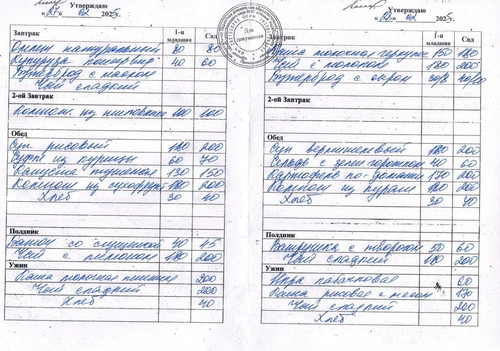 Утверждаю
« 27 » 02 2025г
Завтрак
1-я младшая
Сад
Омлет натуральный 80 80
Кукуруза консервир 40 60
Бутерброд с маслом
Чай сладкий
2-ой Завтрак
Компот из 100 100
Обед
Суп рисовый 180 200
Суфле из курицы 60 70
Капуста тушеная 130 150
Компот из сухофрукт 180 200
Хлеб 30 40
Полдник
Батон со сгущенкой 40 45
Чай с лимоном 180 200
Ужин
Каша молочная пшенная 200
Чай сладкий 200
Хлеб 40
Утверждаю
« » 02 2025
Завтрак
1-я младшая
Сад
Каша молочная 150 180
Чай с молоком 180 200
Бутерброд с сыром
2-ой Завтрак
Обед
Суп вермишелевый 180 200
Сельдь с зелен горошком 40 60
Картофель по-домашн 170 200
Компот из кураги 180 200
Хлеб 30 40
Полдник
Ватрушка с творогом 50 60
Чай сладкий 180 200
Ужин
Икра кабачковая 60
Каша рисовая с маслом
Чай сладкий 200
Хлеб 40